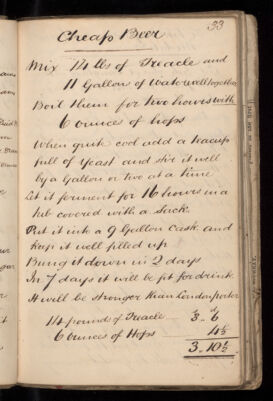 33
Cheap Beer
Mix 14 lbs of Treacle and
11 Gallon of Water well together
Boil them for two hours with
6 ounces of hops
When quite cool add a teacup
full of yeast and stir it well
by a Gallon or two at a time
Let it ferment for 16 hours in a
tub covered with a Sack.
Put it into a 9 Gallon Cask and
keep it well filled up
Bung it down in 2 days
In 7 days it will be fit for drink
It will be stronger than London porter
14 pounds of Treacle — 3 .. 6
6 ounces of Hops 4½
3 .. 10½